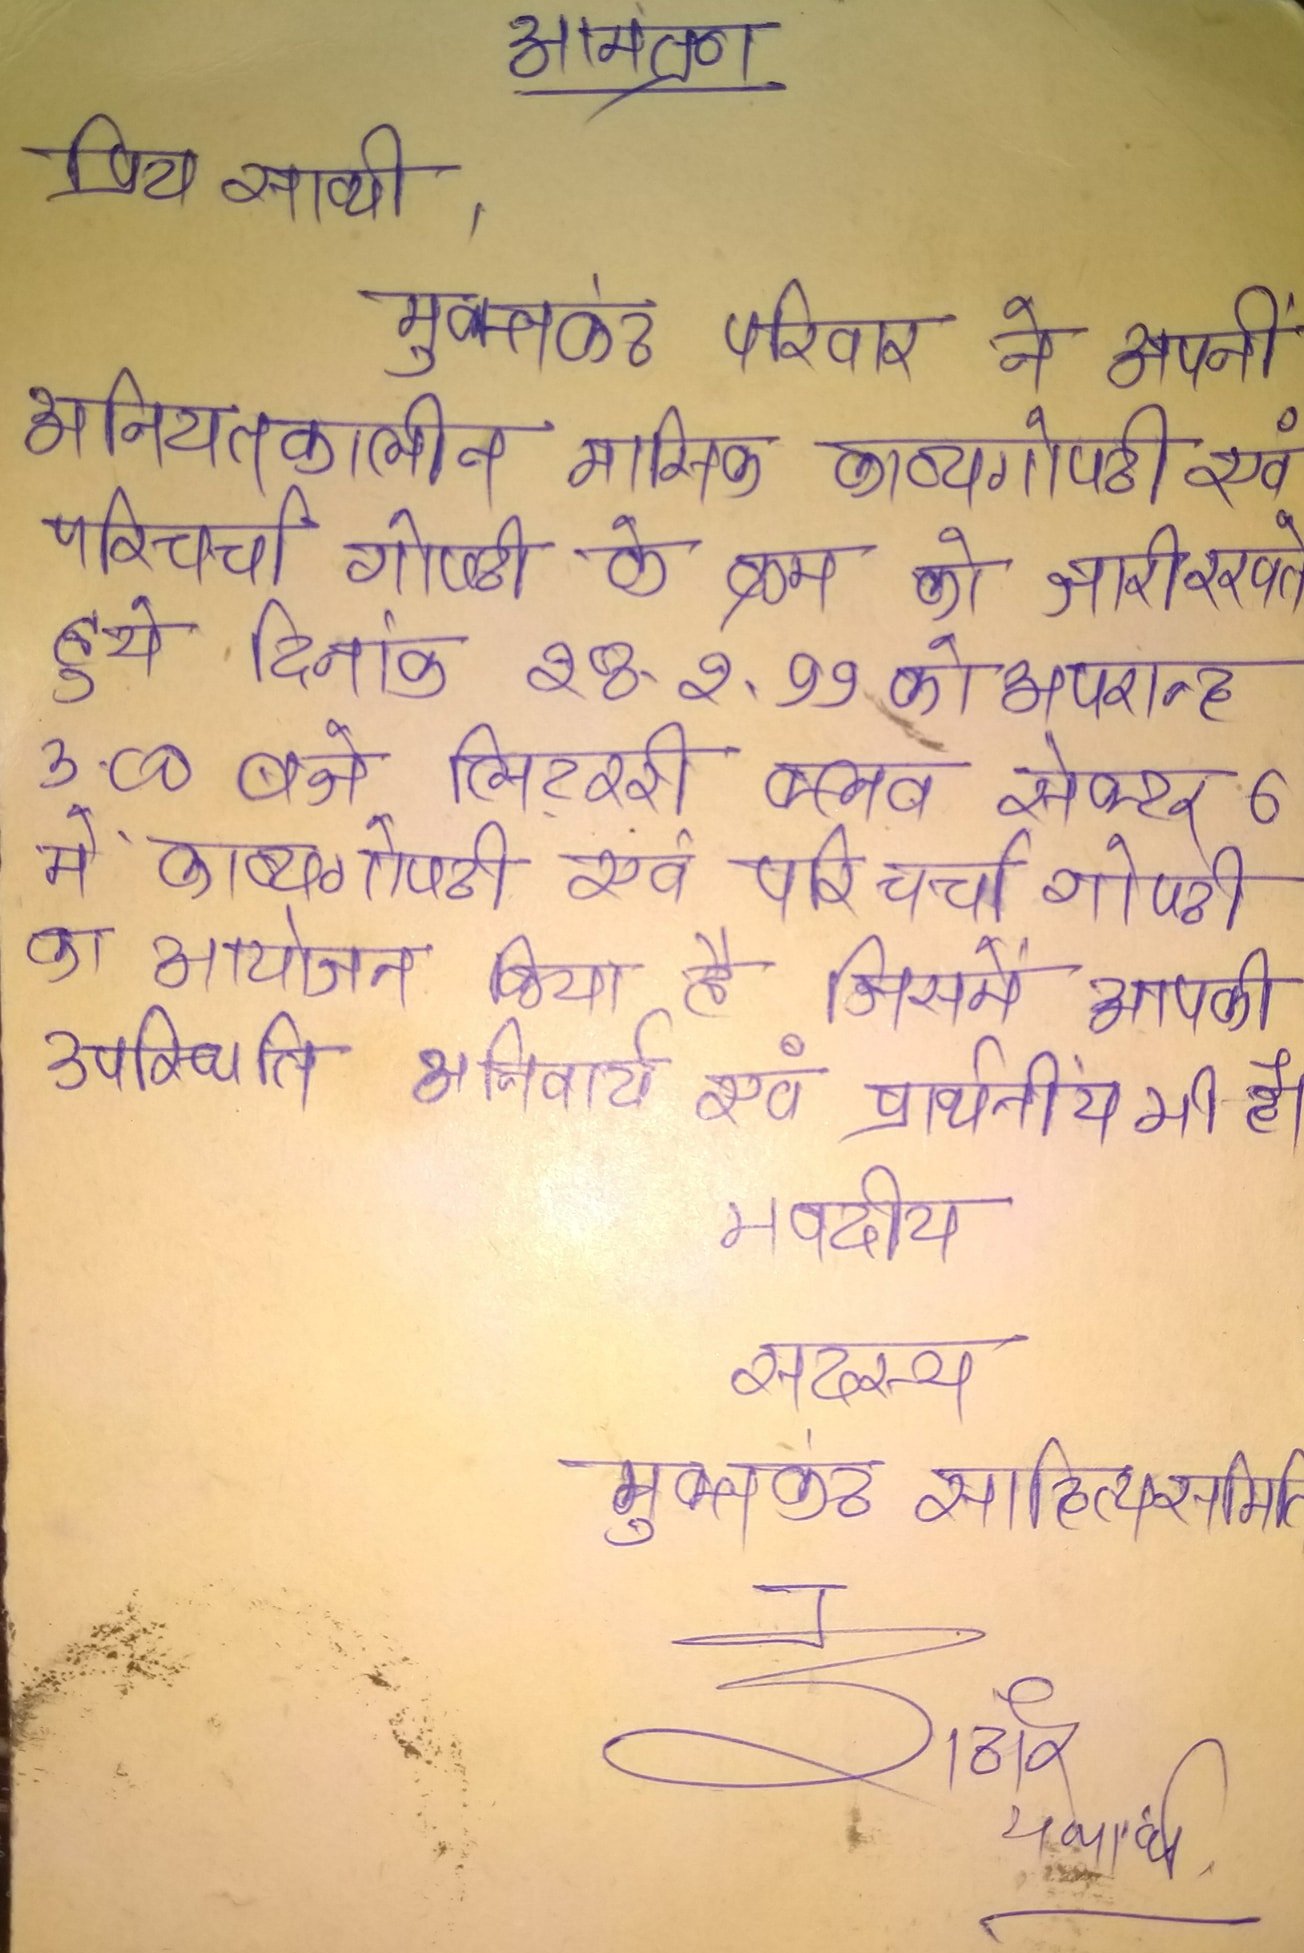 आमंत्रण
प्रिय साथी,
मुक्तकंठ परिवार ने अपनीं
अनियतकालीन मासिक काव्यगोष्ठी एवं
परिचर्चा गोष्ठी के क्रम को जारी रखते
हुये दिनांक २8.२.99 को अपरान्ह
3.00 बजे लिट्ररी क्लब सेक्टर 6
में काव्यगोष्ठी एवं परिचर्चा गोष्ठी
का आयोजन किया है जिसमें आपकी
उपस्थिति अनिवार्य एवं प्रार्थनींय भी है।
भवदीय
सदस्य
मुक्तकंठ साहित्य समिति